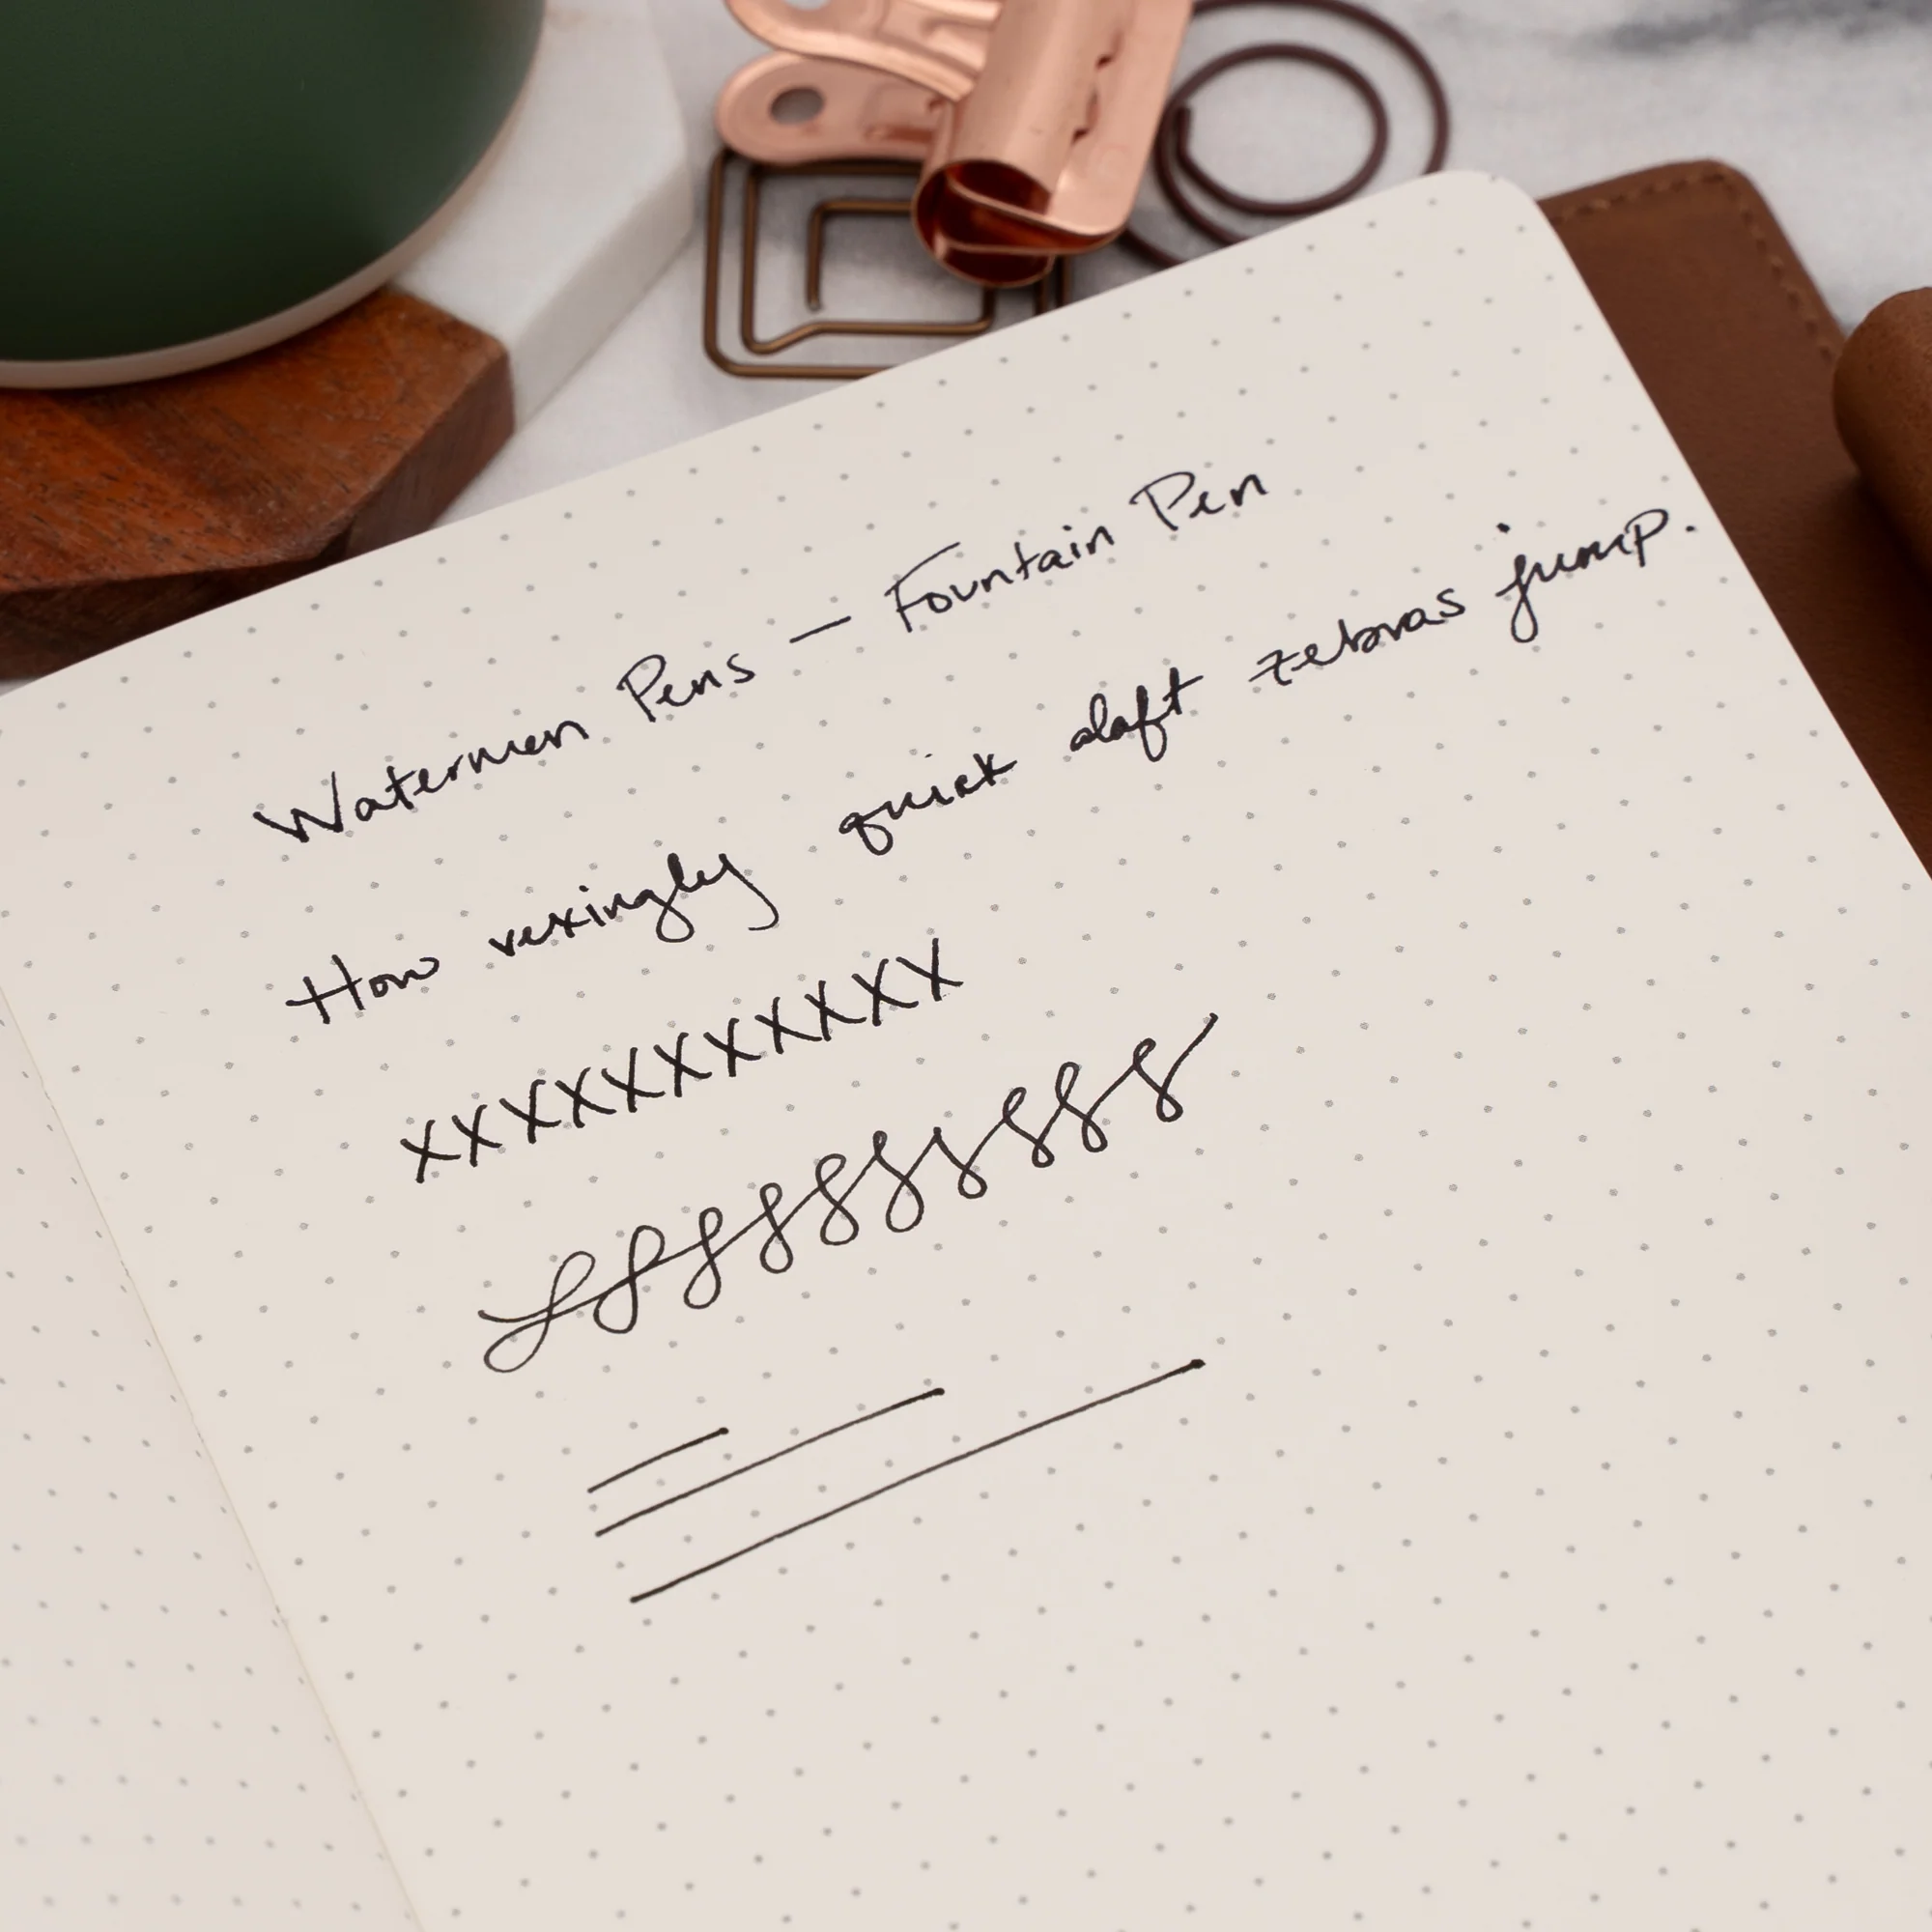 Watermen Pens — Fountain Pen
How vexingly quick daft zebras jump.
xxxxxxxxxxx